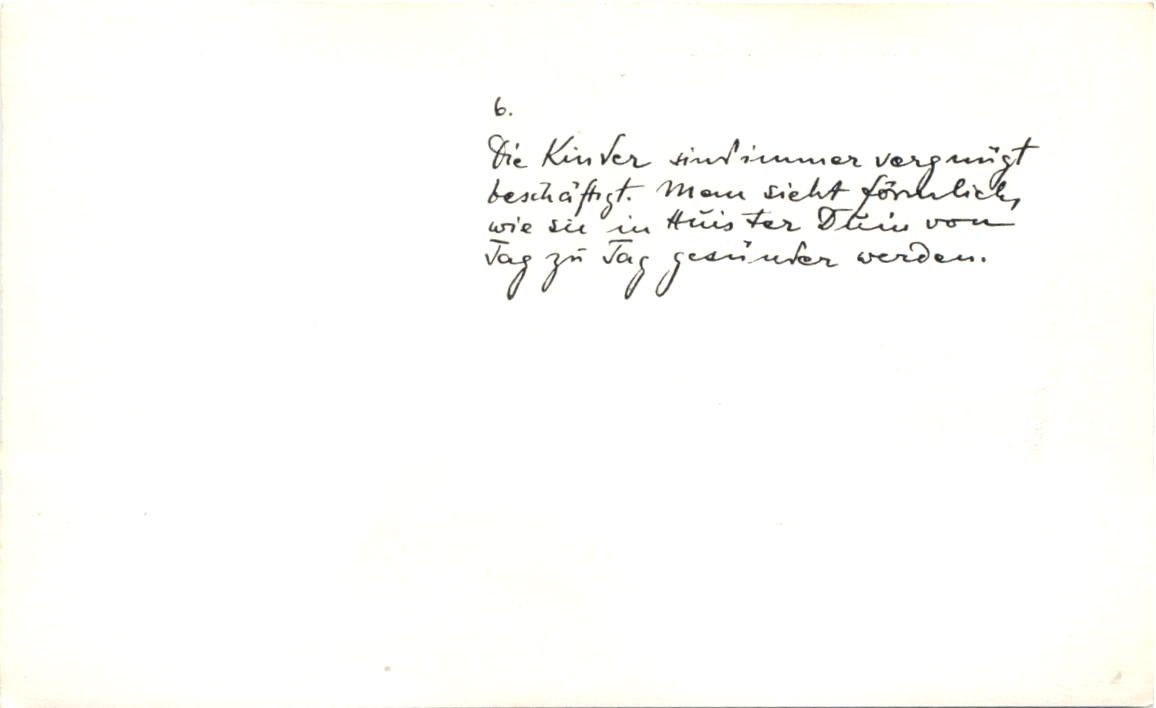 6.
Die Kinder sind immer vergnügt
beschäftigt. Man sieht förmlich,
wie sie in Huis ter Duin von
Tag zu Tag gesünder werden.